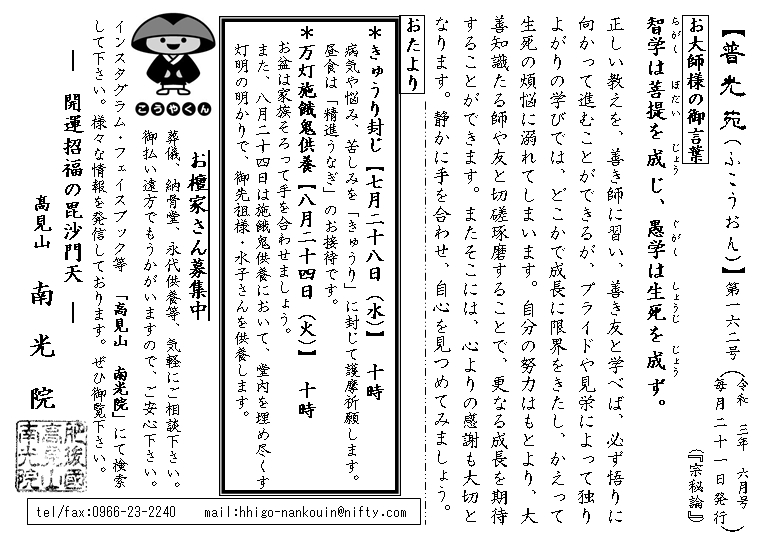 【普光苑(ふこうおん)】第一六二号(令和 三年 六月号)
毎月二十一日発行
お大師様の御言葉
智学は菩提を成じ、愚学は生死を成ず。
ちがく ぼだい じょう ぐがく しょうじ じょう
『宗秘論』
正しい教えを、善き師に習い、善き友と学べば、必ず悟りに
向かって進むことができるが、プライドや見栄によって独り
よがりの学びでは、どこかで成長に限界をきたし、かえって
生死の煩悩に溺れてしまいます。自分の努力はもとより、大
善知識たる師や友と切磋琢磨することで、更なる成長を期待
することができます。またそこには、心よりの感謝も大切と
なります。静かに手を合わせ、自心を見つめてみましょう。
おたより
*きゅうり封じ【七月二十八日(水)】 十時
病気や悩み、苦しみを「きゅうり」に封じて護摩祈願します。
昼食は「精進うなぎ」のお接待です。
*万灯施餓鬼供養【八月二十四日(火)】 十時
お盆は家族そろって手を合わせましょう。
また、八月二十四日は施餓鬼供養において、堂内を埋め尽くす
灯明の明かりで、御先祖様・水子さんを供養します。
こうやくん
お檀家さん募集中
葬儀、納骨堂、永代供養等、気軽にご相談下さい。
御払い遠方でもうかがいますので、ご安心下さい。
インスタグラム・フェイスブック等 「高見山 南光院」にて検索
して下さい。様々な情報を発信しております。ぜひ御覧下さい。
― 開運招福の毘沙門天 ―
高見山 南光院
肥後國
高見山
南光院
tel/fax:0966-23-2240 mail:hhigo-nankouin@nifty.com